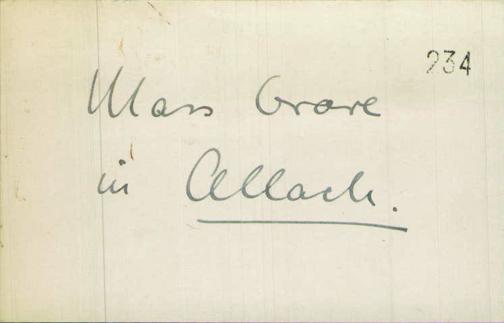 234
Mass Grave
in Allach.